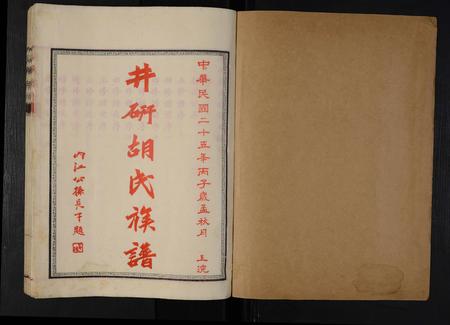 中華民國二十五年丙子歲孟秋月 上浣
井研胡氏族譜
內江公孫長子題